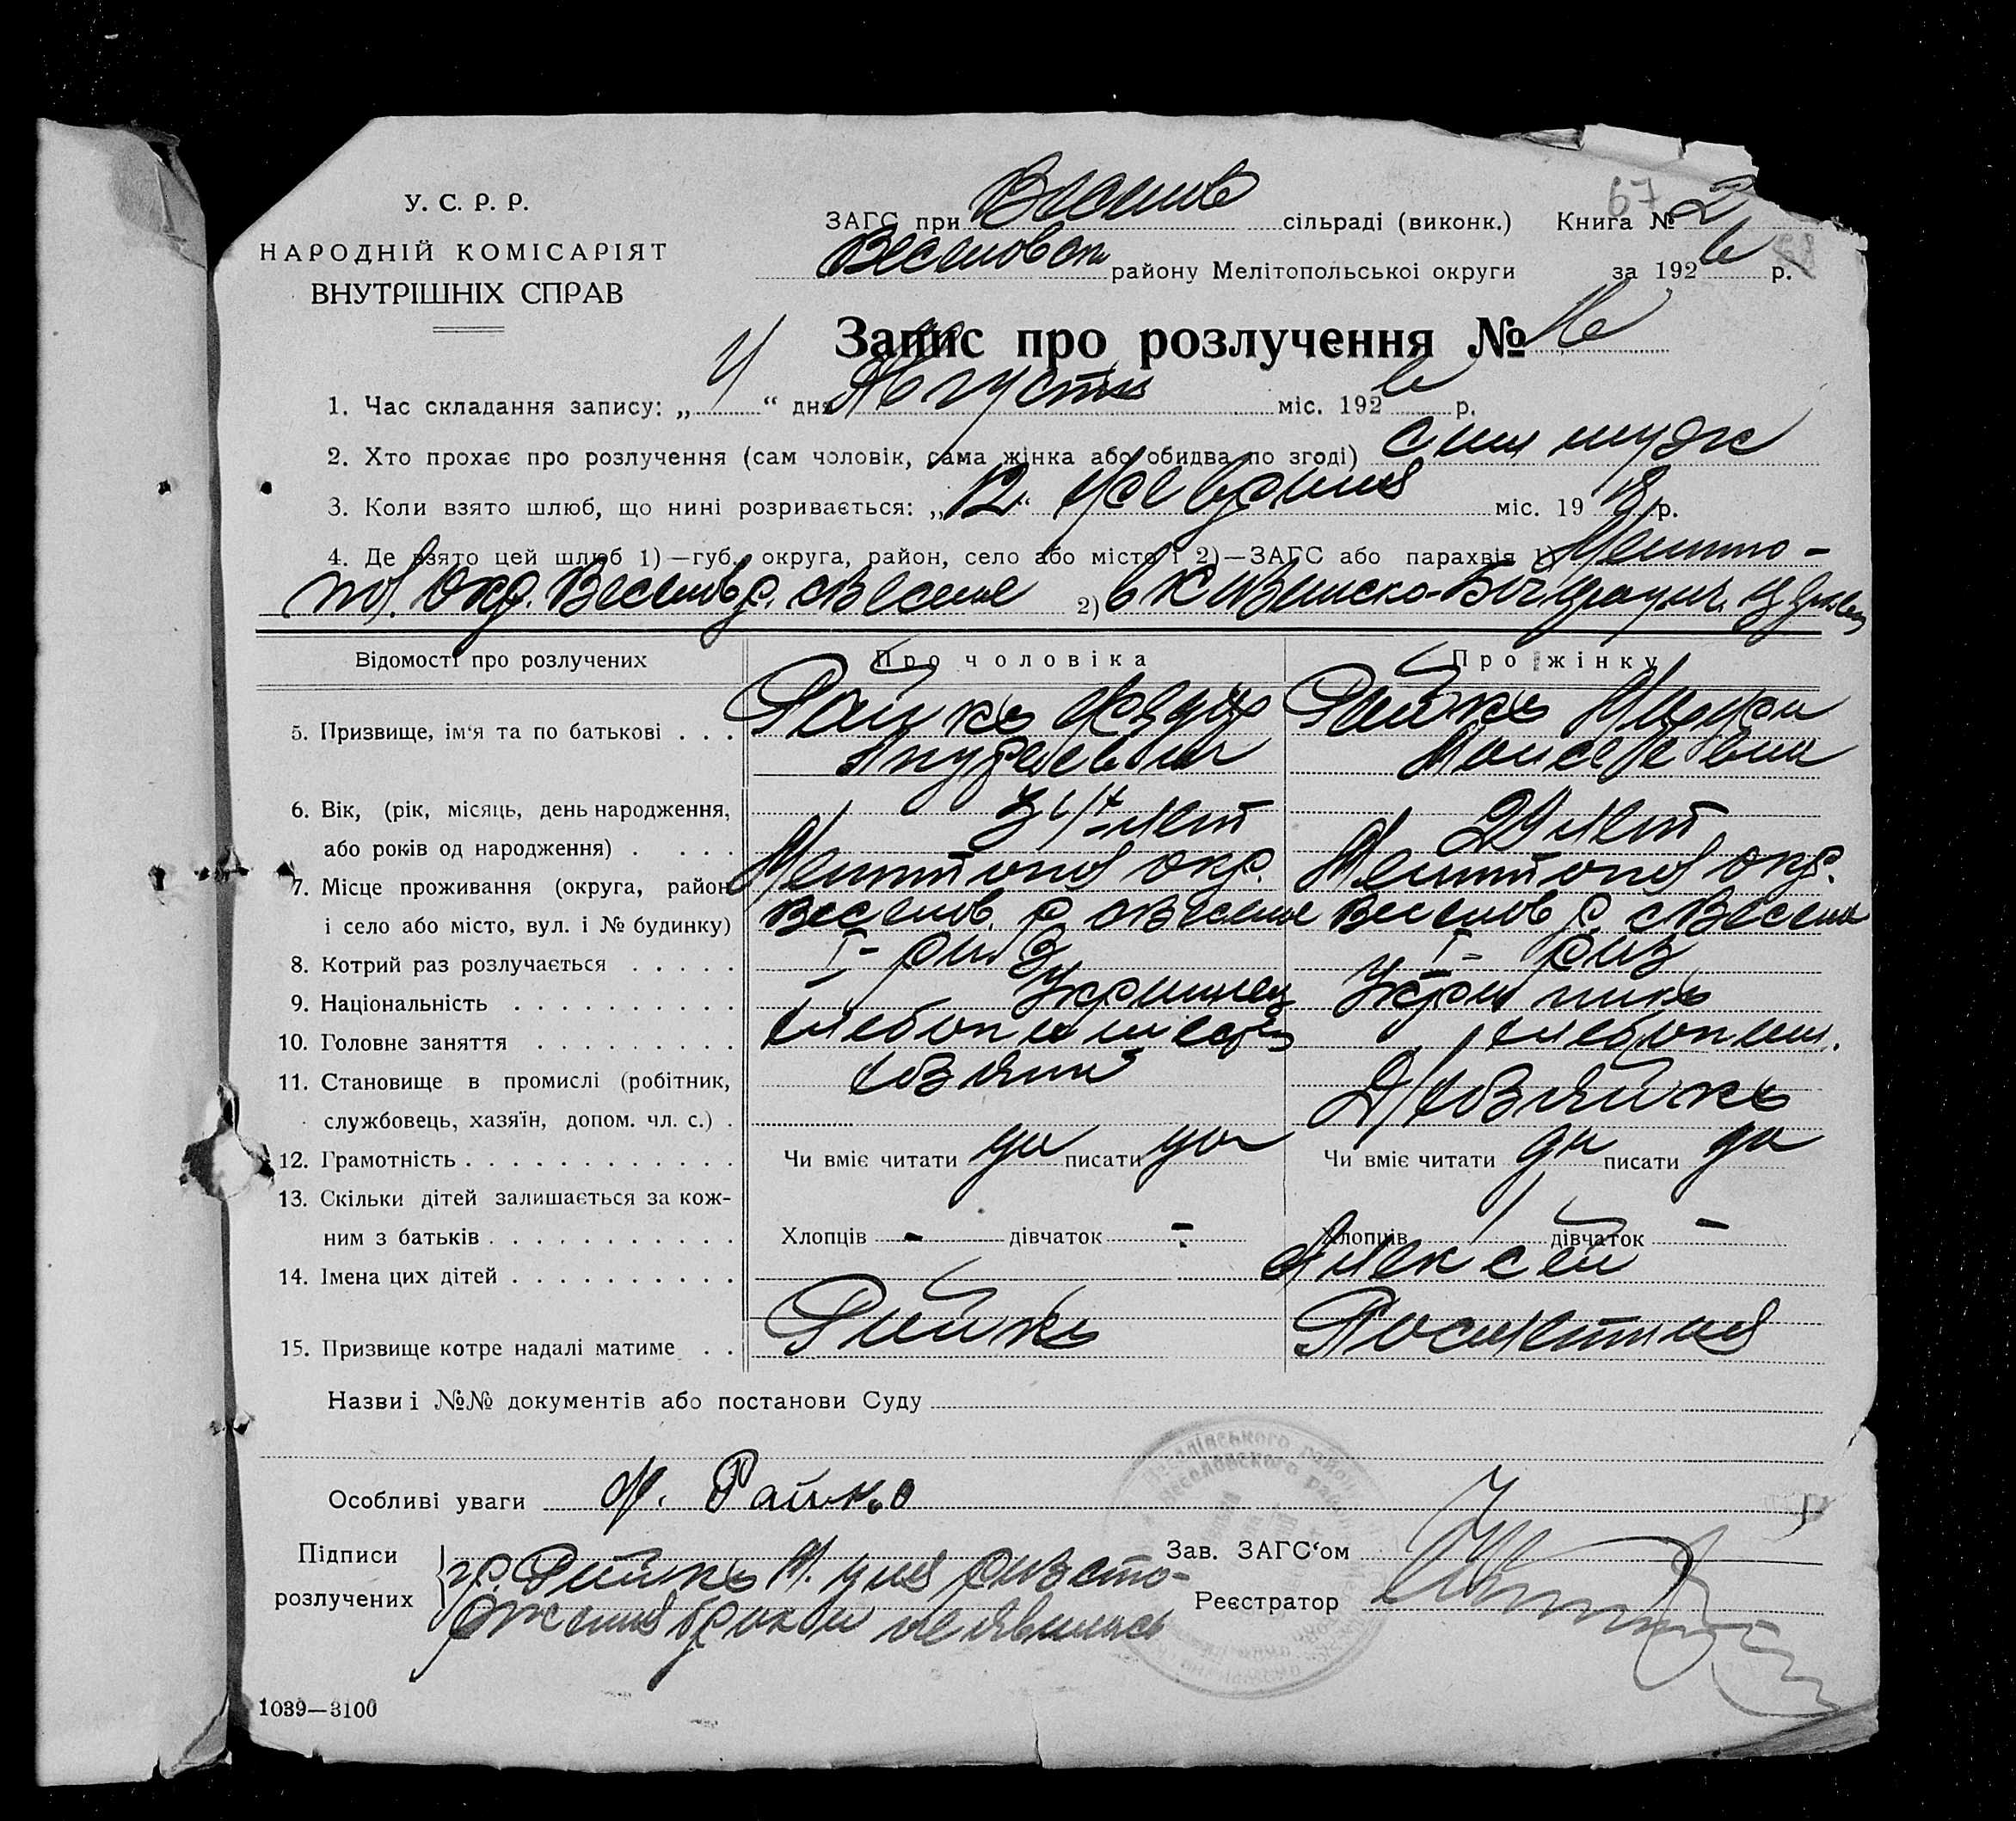 У. С. Р. Р.
НАРОДНІЙ КОМІСАРІЯТ
ВНУТРІШНІХ СПРАВ
67
ЗАГС при Веселів сільраді (виконк.) Книга № 2
Веселовск района Мелітопольської округи за 1926 р.
Запис про розлучення №
1. Час складання запису: „ 4 “ дня Августа міс. 1926 р.
2. Хто прохає про розлучення (сам чоловік, сама жінка або обидва по згоді) сам муж
3. Коли взято шлюб, що нині розривається: „12“ февраля міс. 1918 р.
4. Де взято цей шлюб 1)—губ. округа, район, село або місто і 2)—ЗАГС або парахвія 1) Мелито-
пол. Окр. Веселов р. с Веселое 2) в
Відомості про розлучених Про чоловіка Про жінку
5. Призвище, ім‘я та по батькові . . . Райко Федор Райко Мария
Андреевич Моисеевна
6. Вік, (рік, місяць, день народження,
або років од народження) . . . . лет 24 лет
7. Місце проживання (округа, район Мелитопол окр. Мелитопол окр.
і село або місто, вул. і № будинку) Веселов. р. с Веселое Веселов р. с Веселое
8. Котрий раз розлучається . . . . . I- раз I- раз
9. Національність . . . . . . . . . . Украинец Украинка
10. Головне заняття . . . . . . . . . хлебопашец хлебопаш.
11. Становище в промислі (робітник, хозяин
службовець, хазяїн, допом. чл. с.) . Д/хозяйка
12. Грамотність . . . . . . . . . . . . Чи вміє читати да писати да Чи вміє читати да писати да
13. Скільки дітей залишається за кож-
ним з батьків . . . . . . . . . . . Хлопців - дівчаток - Хлопців 1 дівчаток -
14. Імена цих дітей . . . . . . . . . . Алексей
15. Призвище котре надалі матиме . . Райко
Назви і №№ документів або постанови Суду
Особливі уваги Ф. Райко
Підписи розлучених гр. Райко М. для расто-
ржения брака не явилась
Зав. ЗАГС‘ом
Реєстратор
1039—3100